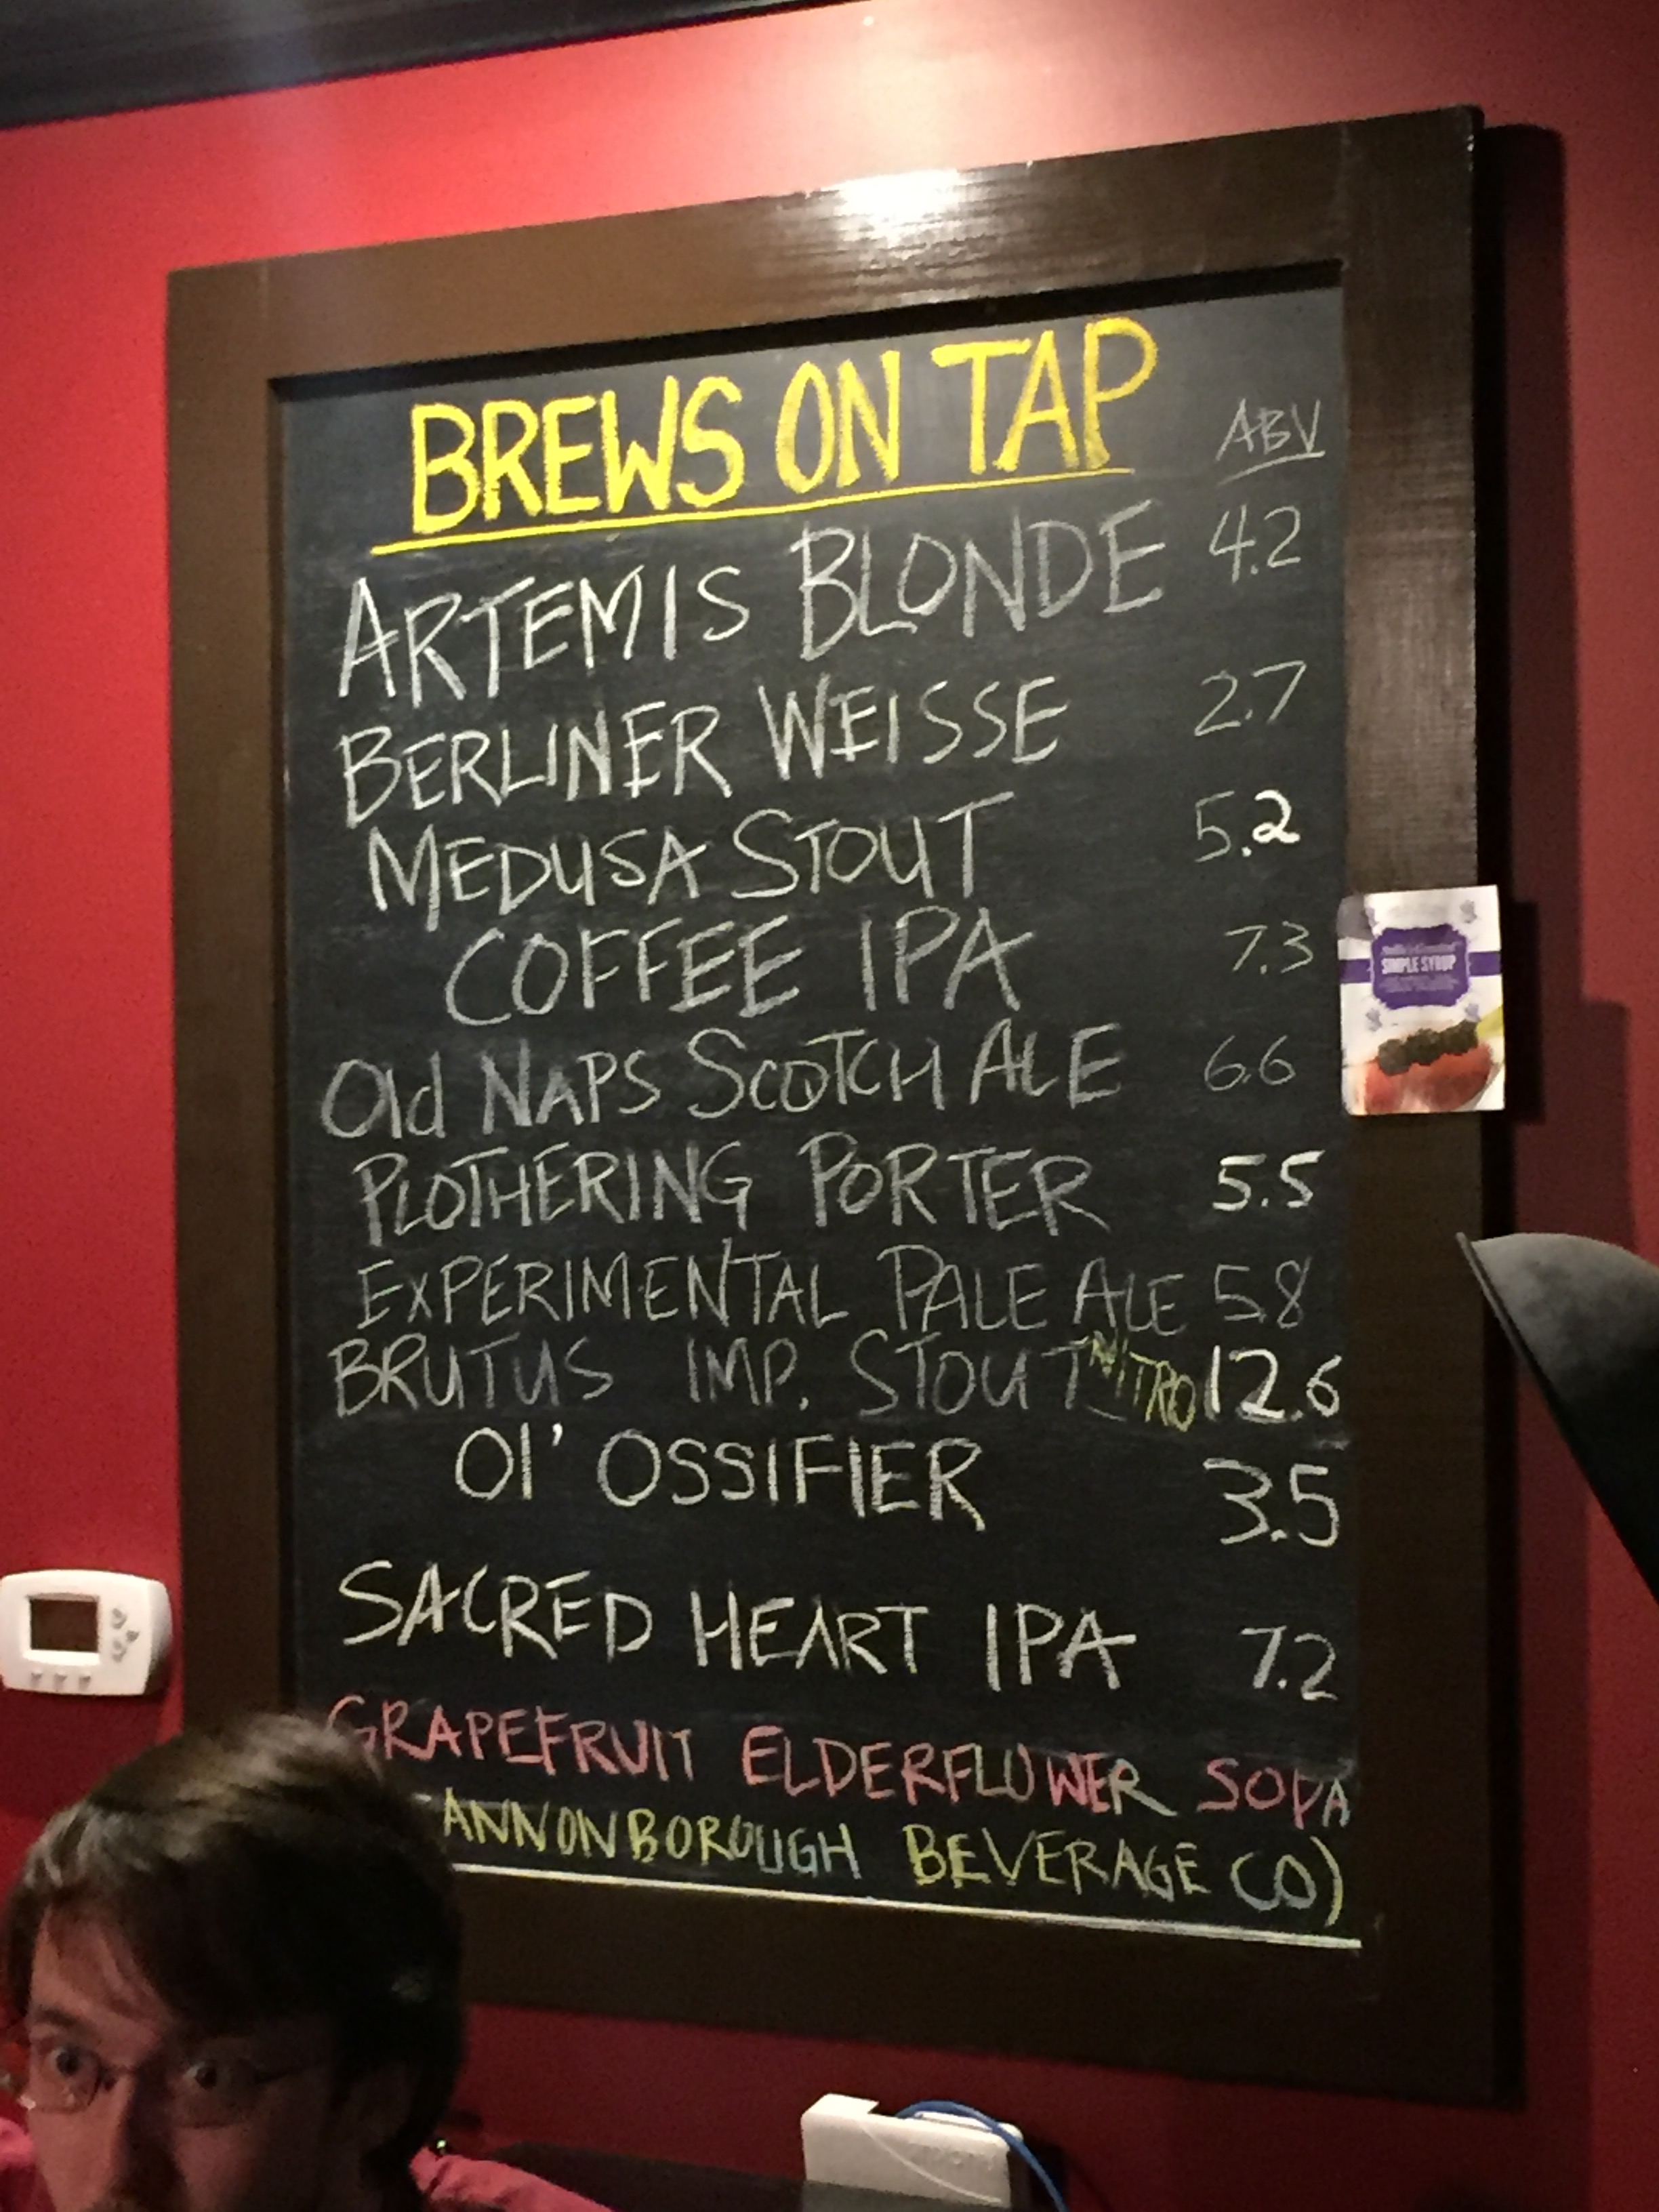 BREWS ON TAP ABV
ARTEMIS BLONDE 4.2
BERLINER WEISSE 2.7
MEDUSA STOUT 5.2
COFFEE IPA 7.3
Old NAPS SCOTCH ALE 6.6
PLOTHERING PORTER 5.5
EXPERIMENTAL PALE ALE 5.8
BRUTUS IMP. STOUT NITRO 12.6
Ol' OSSIFIER 3.5
SACRED HEART IPA 7.2
GRAPEFRUIT ELDERFLOWER SODA
ANNONBOROUGH BEVERAGE CO)
SIMPLE SYRUP